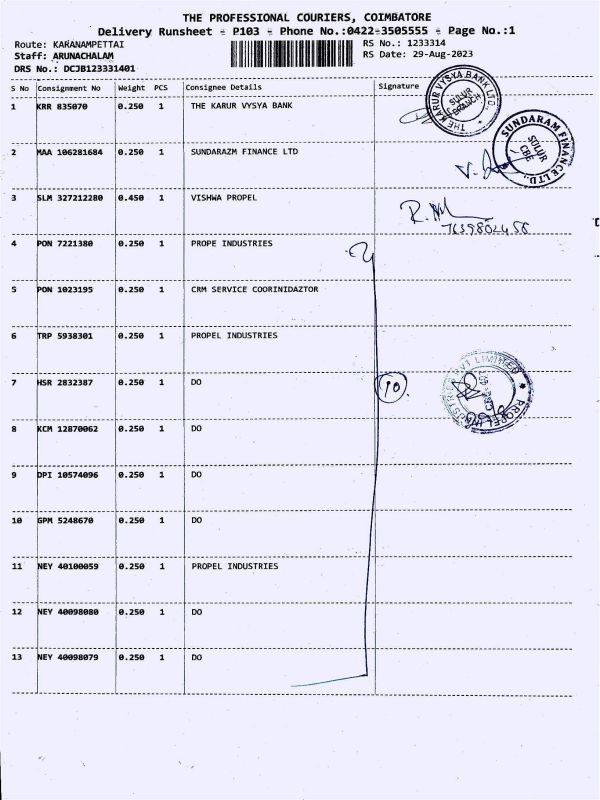 THE PROFESSIONAL COURIERS, COIMBATORE
Delivery Runsheet - P103 - Phone No.:0422-3505555 - Page No.:1
Route: KARANAMPETTAI RS No.: 1233314
Staff: ARUNACHALAM RS Date: 29-Aug-2023
DRS No.: DCJB123331401
S No Consignment No Weight PCS Consignee Details Signature
1 KRR 835070 0.250 1 THE KARUR VYSYA BANK
THE KARUR VYSYA BANK LTD.,
SULUR
BRANCH
2 MAA 106281684 0.250 1 SUNDARAZM FINANCE LTD
SUNDARAM FINANCE LTD.,
SULUR
CBE
3 SLM 327212280 0.450 1 VISHWA PROPEL
4 PON 7221380 0.250 1 PROPE INDUSTRIES
5 PON 1023195 0.250 1 CRM SERVICE COORINIDAZTOR
6 TRP 5938301 0.250 1 PROPEL INDUSTRIES
7 HSR 2832387 0.250 1 DO
10
8 KCM 12870062 0.250 1 DO
9 DPI 10574096 0.250 1 DO
10 GPM 5248670 0.250 1 DO
11 NEY 40100059 0.250 1 PROPEL INDUSTRIES
12 NEY 40098080 0.250 1 DO
13 NEY 40098079 0.250 1 DO